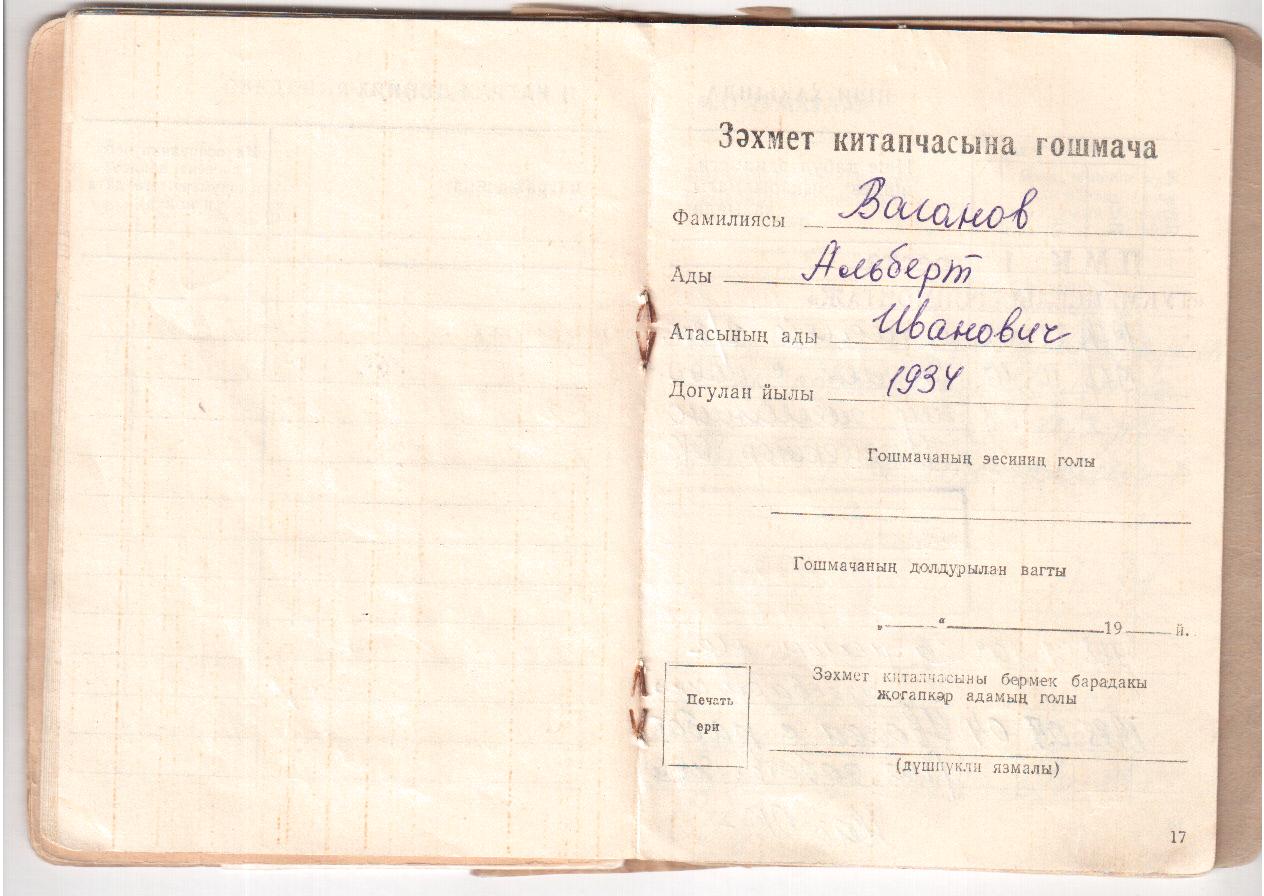 Зәхмет китапчасына гошмача
Фамилиясы Ваганов
Ады Альберт
Атасының ады Иванович
Догулан йылы 1934
Гошмачаның эесиниң голы
Гошмачаның долдурылан вагты
„ “ 19 й.
Зәхмет китапчасыны бермек барадакы
җогапкәр адамың голы
Печать
ери
(дүшнүкли язмалы)
17